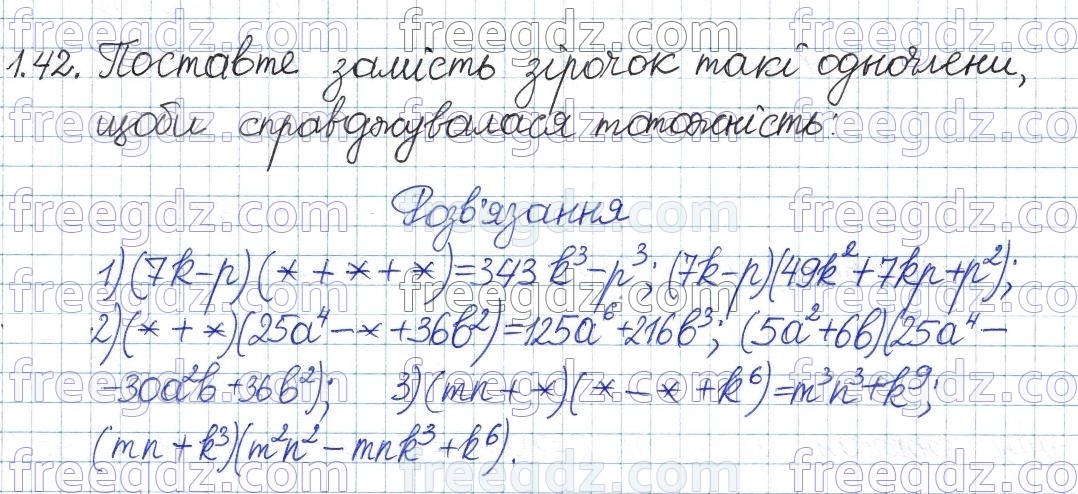 1.42. Поставте замість зірочок такі одночлени,
щоби справджувалася тотожність:
Розв'язання
1) (7k-p)(*+*+*)=343k³-p³; (7k-p)(49k²+7kp+p²);
2) (*+*)(25a⁴-*+36b²)=125a⁶+216b³; (5a²+6b)(25a⁴-
-30a²b+36b²); 3) (mn+*)(*-*+k⁶)=m³n³+k⁹;
(mn+k³)(m²n²-mnk³+k⁶).
freegdz.com